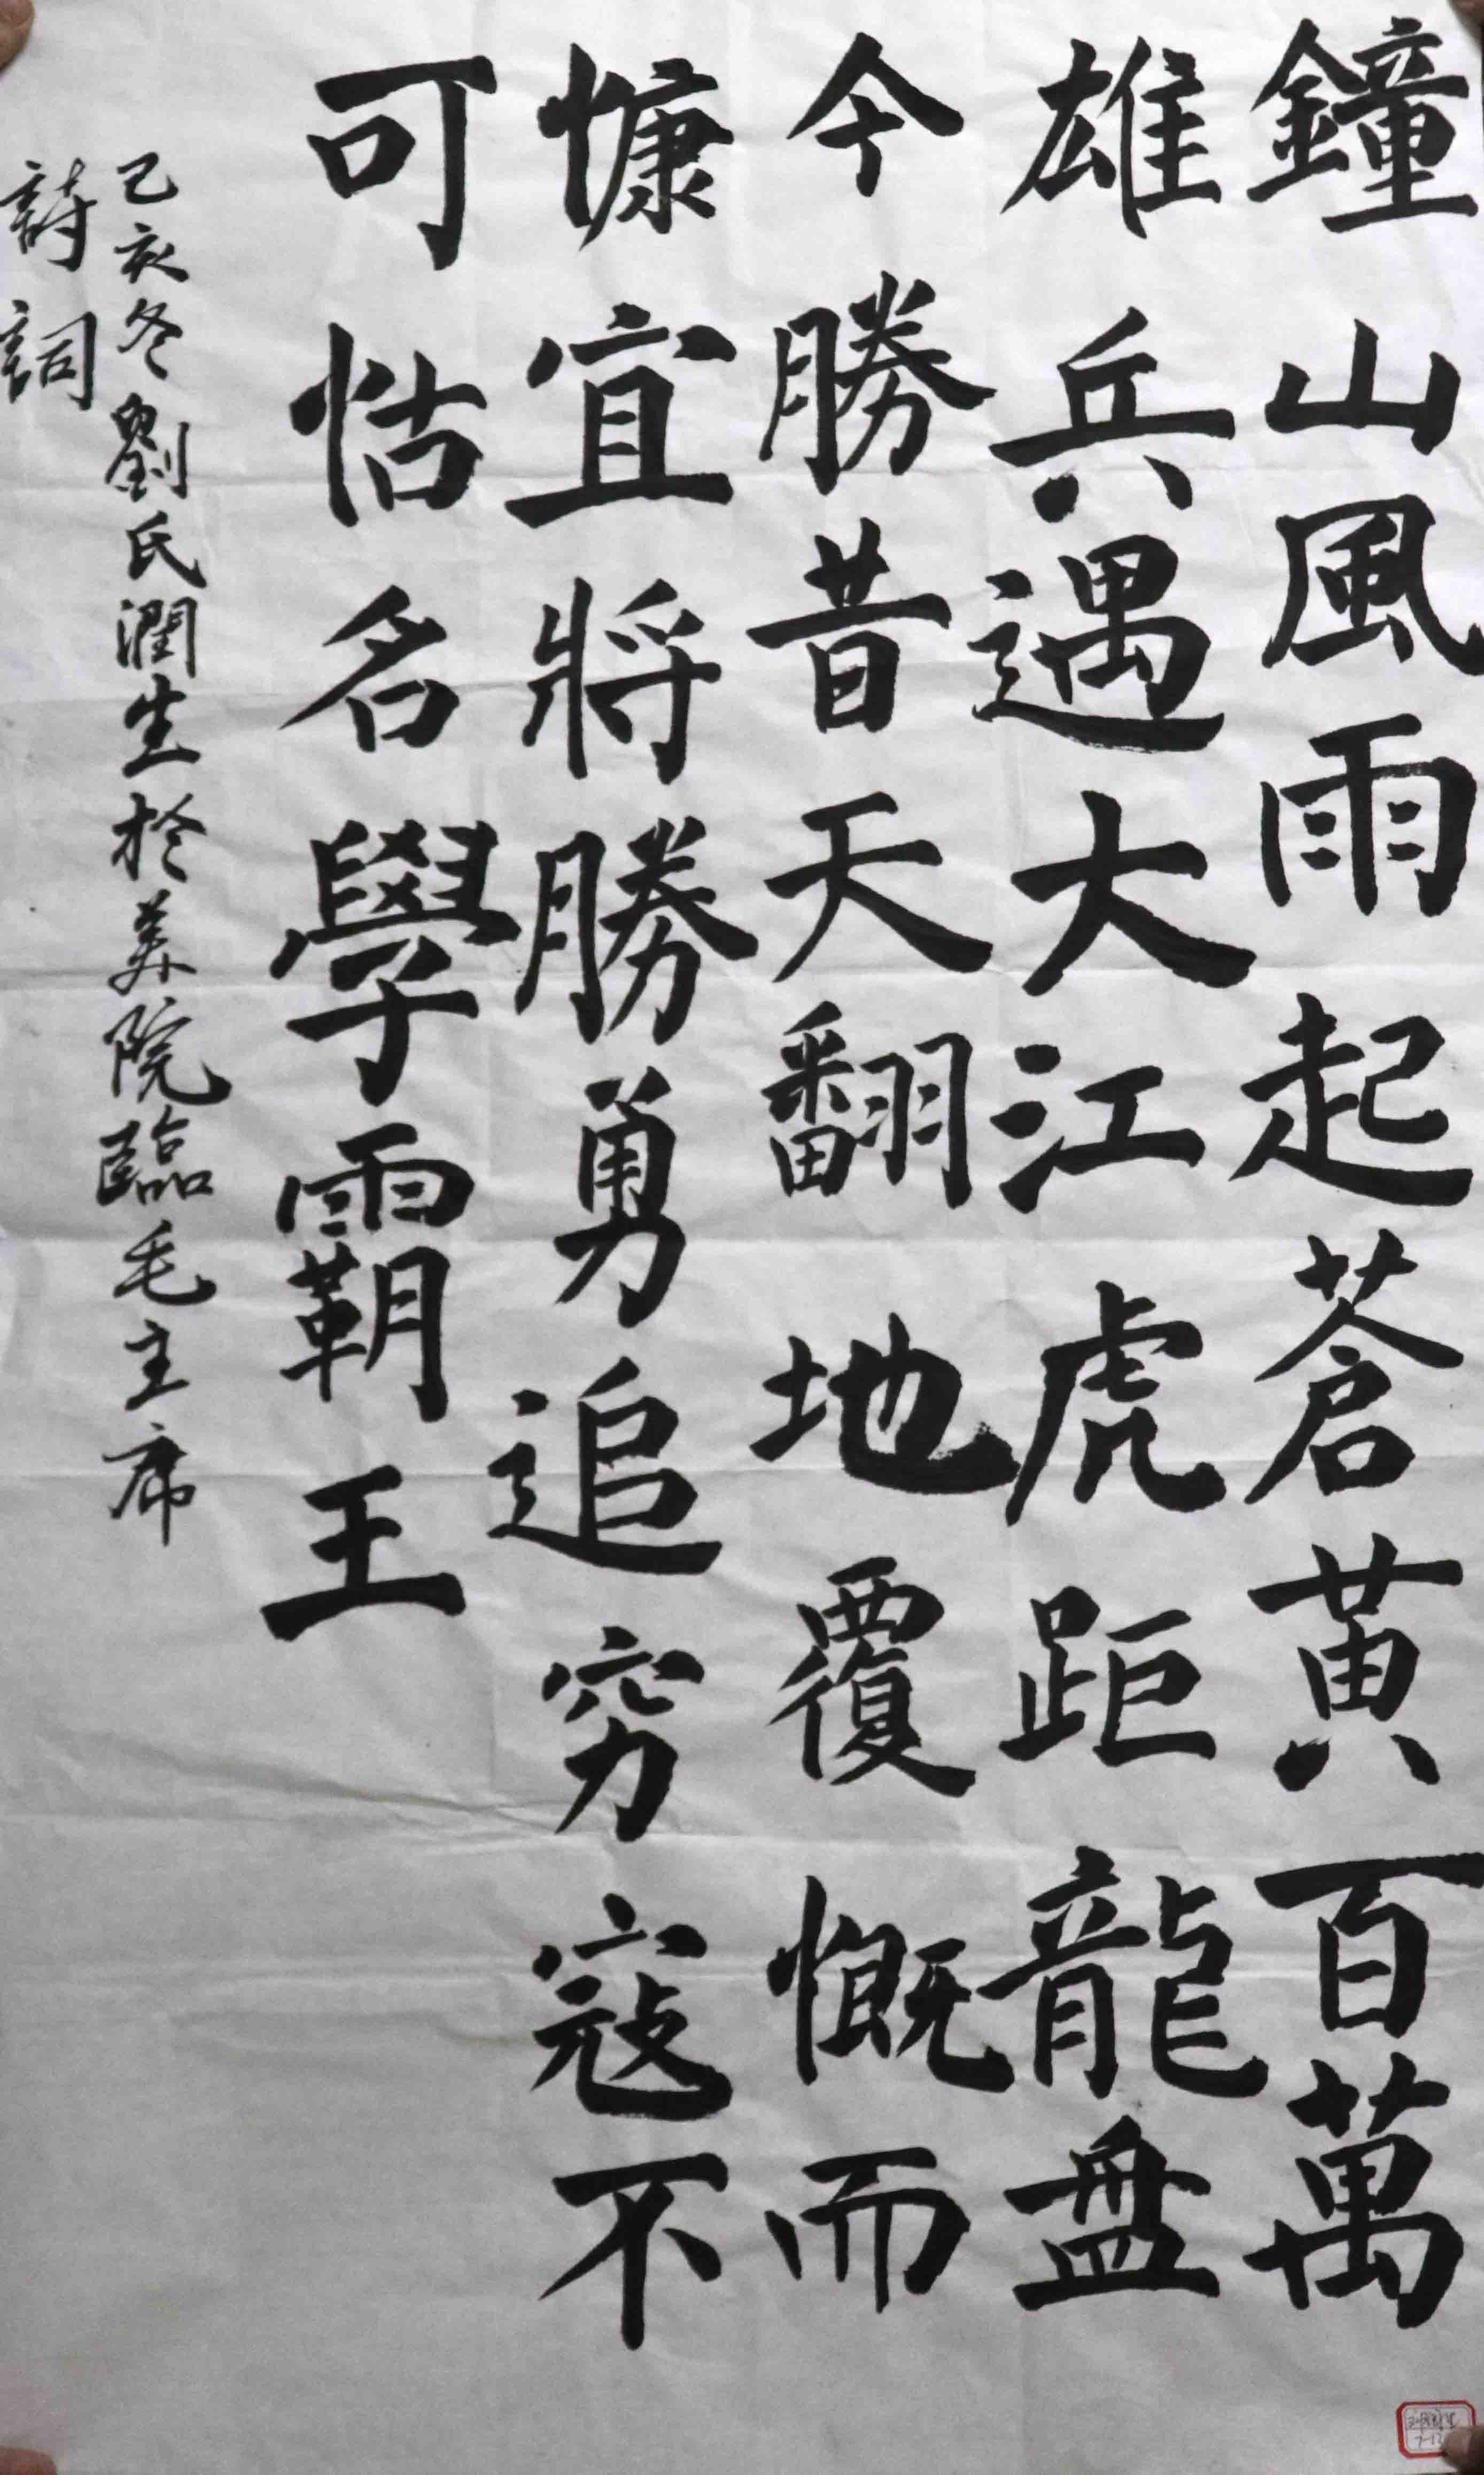 鐘山風雨起蒼黃百萬
雄兵遇大江虎距龍盘
今勝昔天翻地覆慨而
慷宜將勝勇追穷寇不
可怙名學霸王
己亥冬劉氏潤生於美院臨毛主席
詩詞